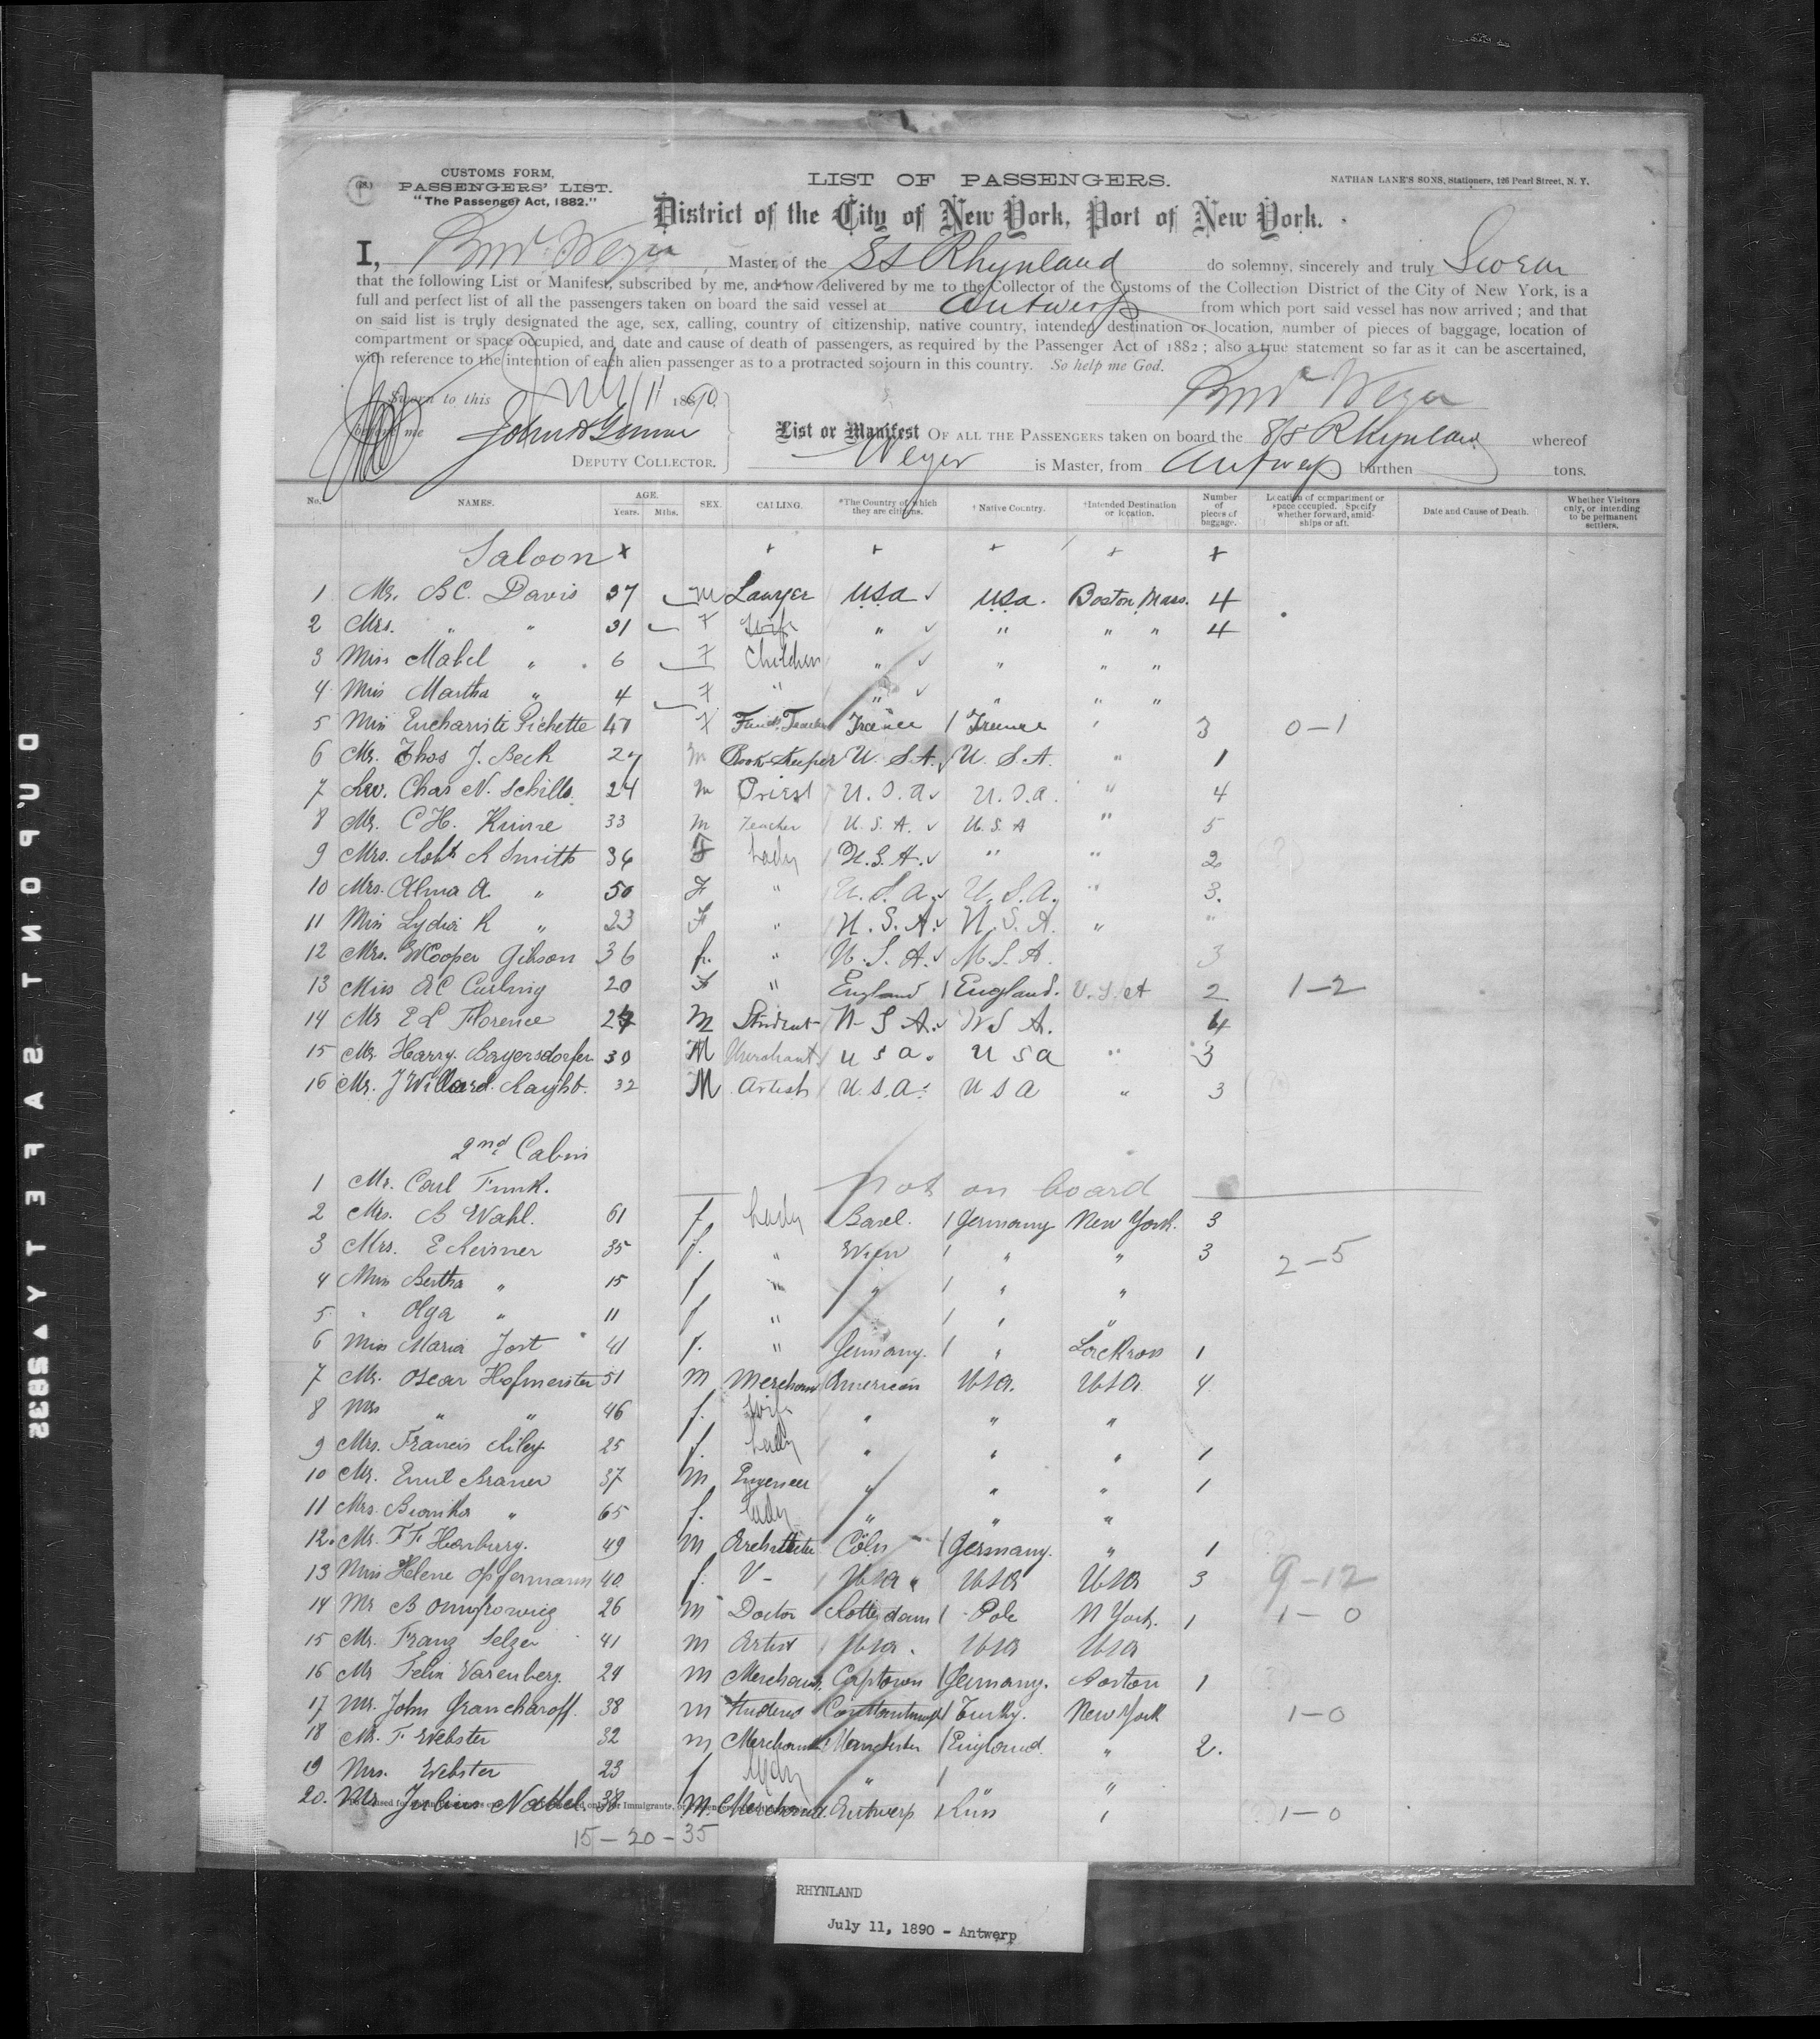 CUSTOMS FORM,
PASSENGERS' LIST.
"The Passenger Act, 1882."
LIST OF PASSENGERS.
NATHAN LANE'S SONS, Stationers, 126 Pearl Street, N. Y.
District of the City of New York, Port of New York.
I, Master of the SS Rhynland do solemny, sincerely and truly Swear
that the following List or Manifest, subscribed by me, and now delivered by me to the Collector of the Customs of the Collection District of the City of New York, is a
full and perfect list of all the passengers taken on board the said vessel at Antwerp from which port said vessel has now arrived; and that
on said list is truly designated the age, sex, calling, country of citizenship, native country, intended destination or location, number of pieces of baggage, location of
compartment or space occupied, and date and cause of death of passengers, as required by the Passenger Act of 1882; also a true statement so far as it can be ascertained,
with reference to the intention of each alien passenger as to a protracted sojourn in this country. So help me God.
Sworn to this July 11 1890
before me
DEPUTY COLLECTOR.
List or Manifest OF ALL THE PASSENGERS taken on board the S/S Rhynland whereof
Weyer is Master, from Antwerp burthen tons.
No. NAMES. AGE. Years. Mths. SEX. CALLING. *The Country of which they are citizens. † Native Country. †Intended Destination or location. Number of pieces of baggage. Location of compartment or space occupied. Specify whether forward, amidships or aft. Date and Cause of Death. Whether Visitors only, or intending to be permanent settlers.
Saloon
1 Mr. B C. Davis 37 M Lawyer USA USA. Boston, Mass. 4
2 Mrs. " " 31 F Wife " " " " 4
3 Miss Mabel " 6 F Children " " " "
4 Miss Martha " 4 F " " " " "
5 Miss Euchariste Pichette 40 F France France " 3 0-1
6 Mr. Thos J. Beck 27 M Book Keeper U. S. A. U. S. A. " 1
7 Rev. Chas N. Schills 24 M Priest U. S. A. U. S. A. " 4
8 Mr. C H. 33 M Teacher U. S. A. U. S. A " 5
9 Mrs. Robt R Smith 36 F Lady U. S. A. " " 2
10 Mrs. Alma A. " 50 F " U. S. A. U. S. A. " 3.
11 Miss Lydia R " 23 F " U. S. A. U. S. A. " "
12 Mrs. Cooper Gibson 36 f. " U. S. A. U. S. A. 3
13 Miss Curling 20 F " England England. U. S. A 2 1-2
14 Mr E L Florence 24 M Student U S A. U S A. 4
15 Mr. Harry Bayersdorfer 30 M Merchant U S A. U S A " 3
16 Mr. J Willard Raught. 32 M Artist U. S. A. U S A " 3
2nd Cabin
1 Mr. Carl Funk. not on board
2 Mrs. B Wahl. 61 f. Lady Basel. Germany New York. 3
3 Mrs. E Reisner 35 f. " Wien " " 3 2-5
4 Miss Bertha " 15 f " " " "
5 " Olga " 11 f " " "
6 Miss Maria Jost 41 f. " Germany. " 1
7 Mr. Oscar Hofmeister 51 M Merchant American USA. USA 4
8 Mrs " " 46 f. Wife " " "
9 Mrs. Francis Riley 25 f. Lady " " " 1
10 Mr. Emil 37 M Engeneer " " " 1
11 Mrs. " 65 f. Lady " " "
12. Mr. F F 49 M Cöln Germany. " 1
13 Miss Helene Opfermann 40 f. V- USA " USA USA 3 9-12
14 Mr B 26 M Doctor Rotterdam Pole N York. 1 1-0
15 Mr. Franz Selzer 41 M Artist USA. USA USA
16 Mr Felix Varenberg. 24 M Merchant. Captown Germany. 1
17 Mr. John Grancharoff. 38 M Turky. New York 1-0
18 Mr. F Webster 32 M Merchant Manchester England. " 2.
19 Mrs. Webster 23 f Lady " "
20. Mr Julius Nabel 38 M. Merchand. Antwerp " 1-0
15-20-35
RHYNLAND
July 11, 1890 - Antwerp
DUPONT SAFETY 5635